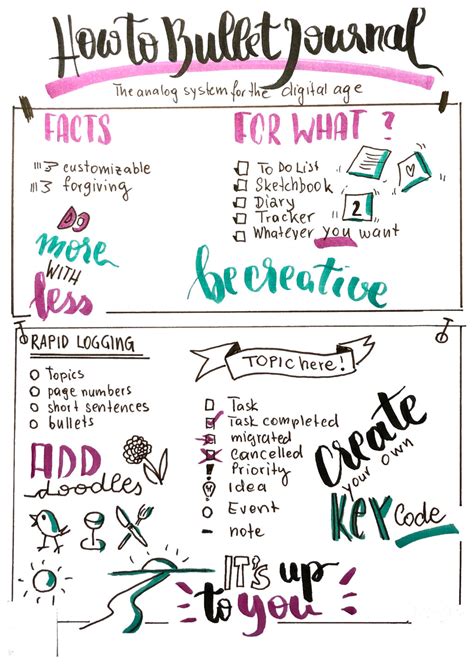 How to Bullet Journal
The analog system for the digital age
FACTS
customizable
forgiving
DO
more
WITH
less
FOR WHAT?
To Do List
Sketchbook
Diary
Tracker
Whatever you want
2
be creative
RAPID LOGGING
Topics
page numbers
short sentences
bullets
ADD
doodles
TOPIC here!
Task
Task completed
migrated
Cancelled
Priority
Idea
Event
note
Create
your own
KEY Code
IT's up
to you